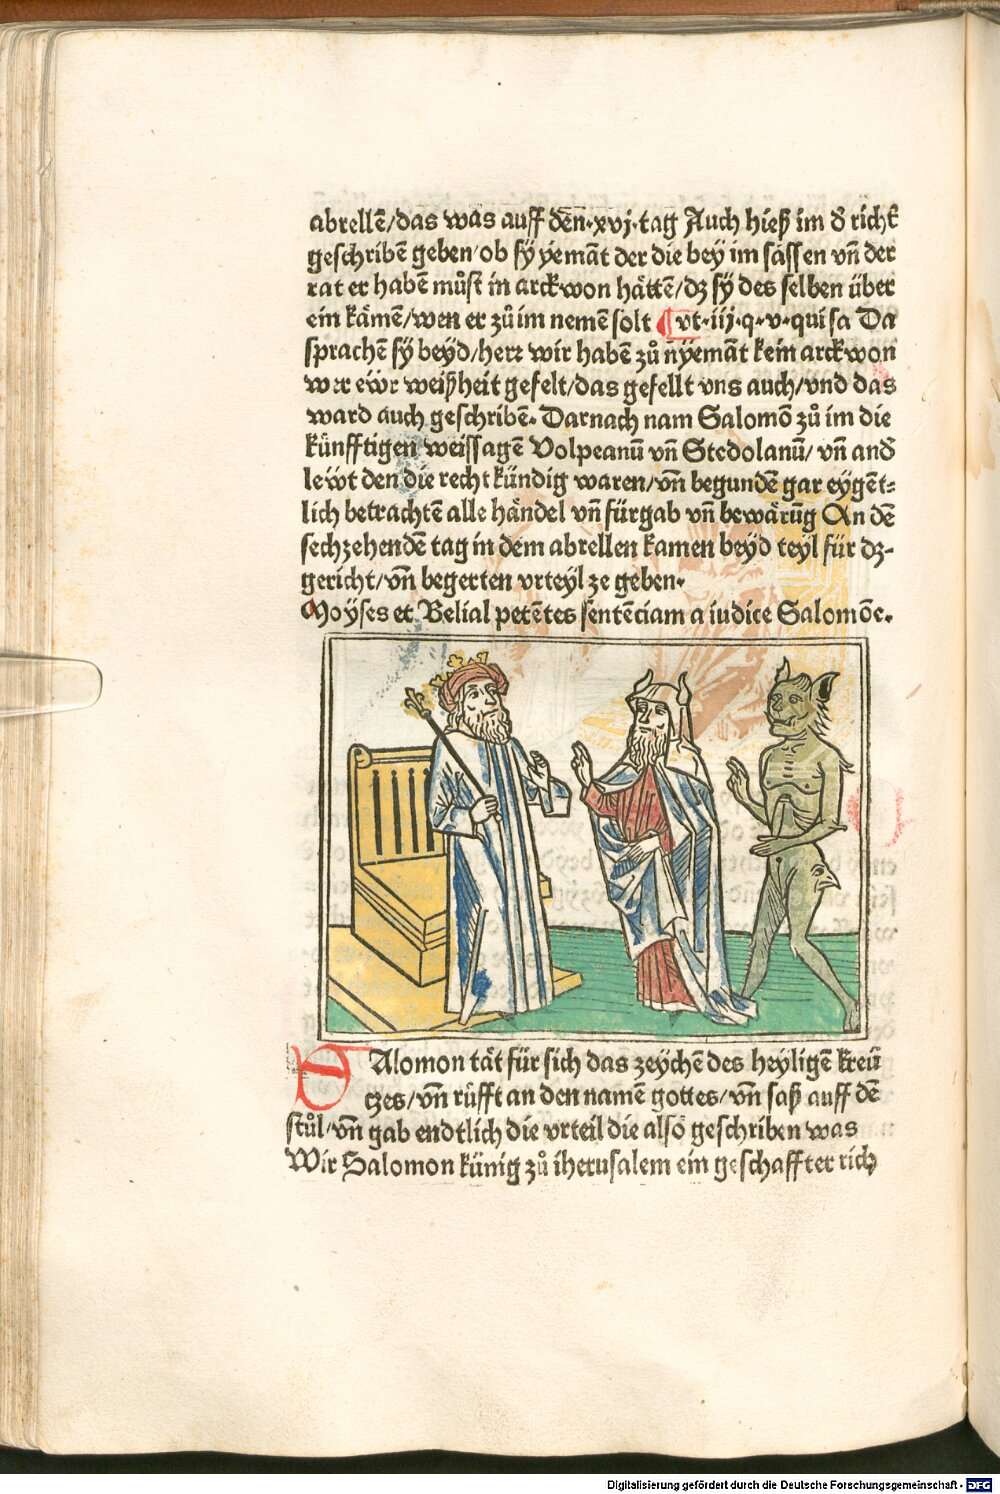 abrellē/das was auff dēn·xvj·tag Auch hieß im d̄ richt̄
geschribē geben/ob sÿ yemāt der die bey im sässen vn̄ der
rat er habē můst in arckwon hättē/dz sÿ des selben über
ein kämē/wen er zů im nemē solt ¶vt·iij·q·v·quisa Da
sprachē sÿ beyd/herr wir habē zů nyemāt kein arckwon
wer ewr weißheit gefelt/das gefellt vns auch/vnd das
ward auch geschribē. Darnach nam Salomō zů im die
künfftigen weissagē Volpeanū vn̄ Stedolanū/vn̄ and̄
lewt den die recht kündig waren/vn̄ begundē gar eygēt⸗
lich betrachtē alle händel vn̄ fürgab vn̄ bewärūg An dē
sechzehendē tag in dem abrellen kamen beyd teyl für dz⸗
gericht/vn̄ begerten vrteyl ze geben.
Moyses et Belial petētes sentēciam a iudice Salomōe.
SAlomon tät für sich das zeychē des heyligē kreü
czes/vn̄ rüfft an den namē gottes/vn̄ saß auff dē
stůl/vn̄ gab endtlich die vrteil die also geschriben was
Wir Salomon künig zů iherusalem ein geschaffter rich
Digitalisierung gefördert durch die Deutsche Forschungsgemeinschaft - DFG